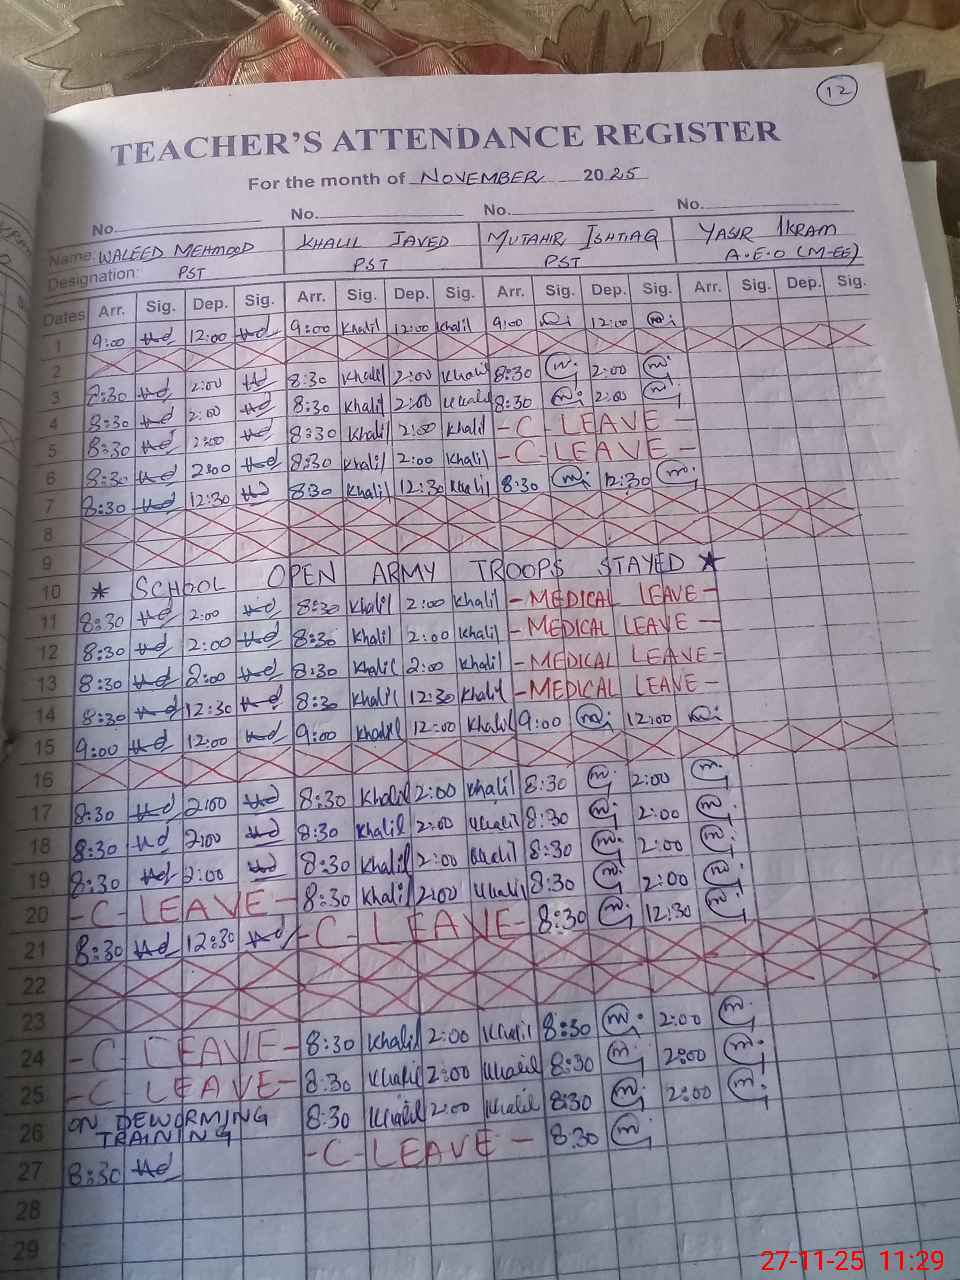 12
TEACHER'S ATTENDANCE REGISTER
For the month of NOVEMBER 2025
No. No. No. No.
Name: WALEED MEHMOOD KHALIL JAVED MUTAHIR ISHTIAQ YASIR IKRAM
Designation: PST PST PST A.E.O (M-EE)
Dates Arr. Sig. Dep. Sig. Arr. Sig. Dep. Sig. Arr. Sig. Dep. Sig. Arr. Sig. Dep. Sig.
1 9:00 12:00 9:00 Khalil 12:00 Khalil 9:00 12:00
2
3 8:30 2:00 8:30 Khalil 2:00 Khalil 8:30 2:00
4 8:30 2:00 8:30 Khalil 2:00 Khalil 8:30 2:00
5 8:30 2:00 8:30 Khalil 2:00 Khalil -C LEAVE-
6 8:30 2:00 8:30 Khalil 2:00 Khalil -C LEAVE-
7 8:30 12:30 8:30 Khalil 12:30 Khalil 8:30 12:30
8
9
10 * SCHOOL OPEN ARMY TROOPS STAYED ★
11 8:30 2:00 8:30 Khalil 2:00 Khalil -MEDICAL LEAVE-
12 8:30 2:00 8:30 Khalil 2:00 Khalil -MEDICAL LEAVE-
13 8:30 2:00 8:30 Khalil 2:00 Khalil -MEDICAL LEAVE-
14 8:30 12:30 8:30 Khalil 12:30 Khalil -MEDICAL LEAVE-
15 9:00 12:00 9:00 Khalil 12:00 Khalil 9:00 12:00
16
17 8:30 2:00 8:30 Khalil 2:00 Khalil 8:30 2:00
18 8:30 2:00 8:30 Khalil 2:00 Khalil 8:30 2:00
19 8:30 2:00 8:30 Khalil 2:00 Khalil 8:30 2:00
20 -C- LEAVE- 8:30 Khalil 2:00 Khalil 8:30 2:00
21 8:30 12:30 -C-LEAVE- 8:30 12:30
22
23
24 -C- LEAVE- 8:30 Khalil 2:00 Khalil 8:30 2:00
25 -C LEAVE- 8:30 Khalil 2:00 Khalil 8:30 2:00
26 ON DEWORMING TRAINING 8:30 Khalil 2:00 Khalil 8:30 2:00
27 8:30 -C-LEAVE- 8:30
28
29
27-11-25 11:29